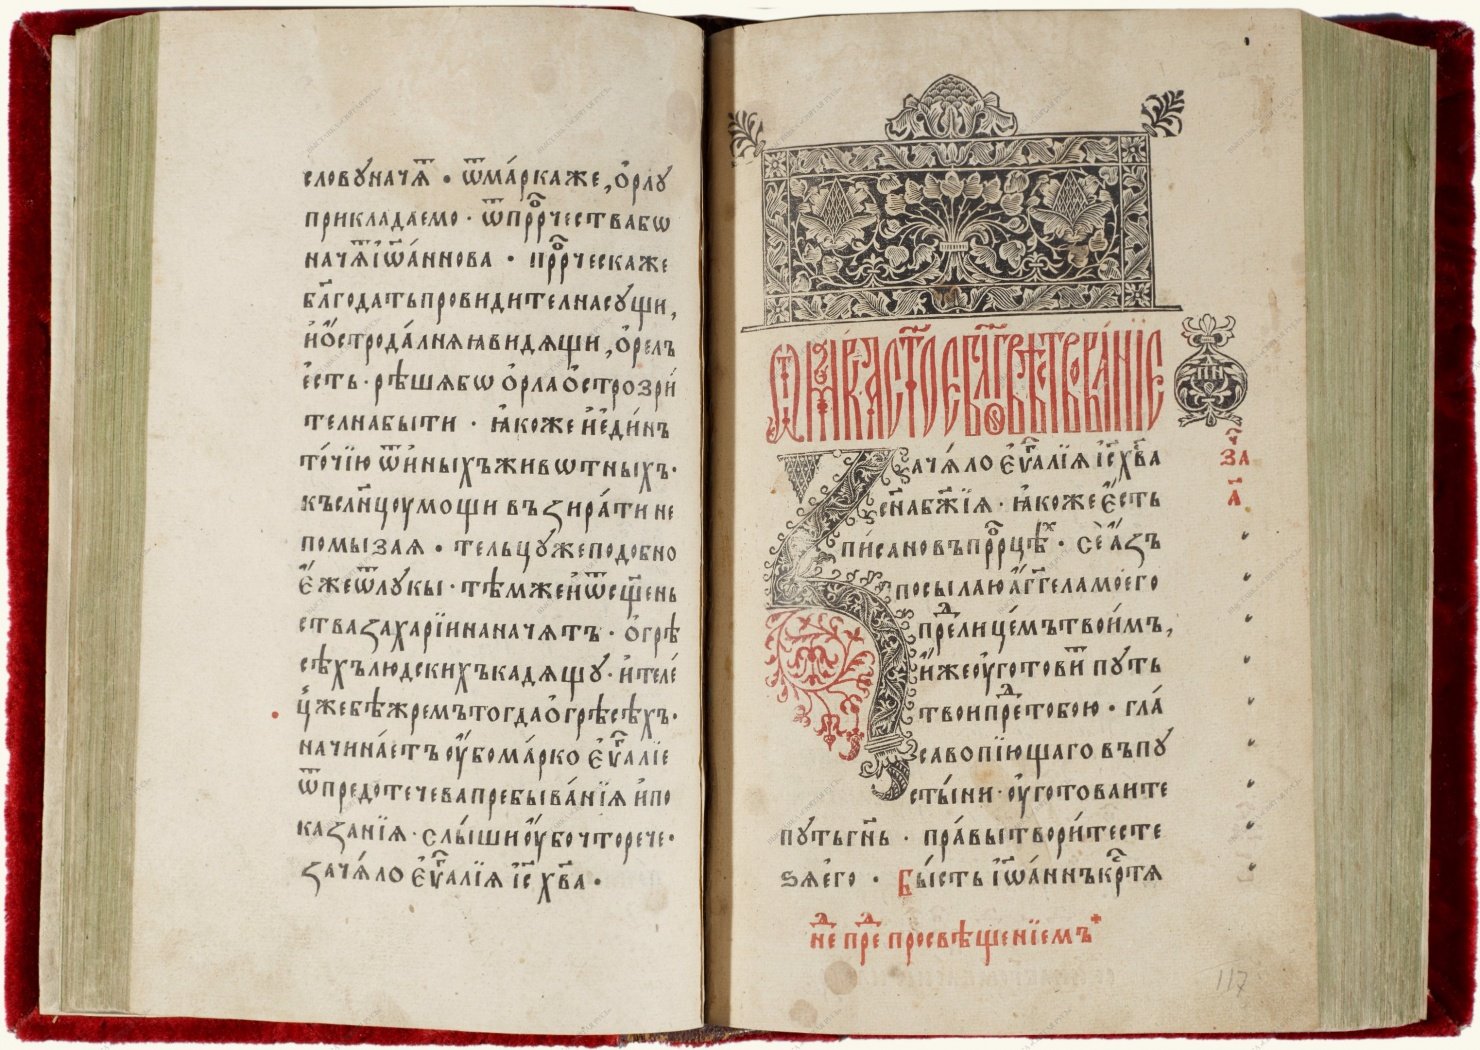 словуначѧ̑ⷮ • ѿма́ркаже, ѻ҆рлу
прикладаемо • ѿпрⷪ҇рчествабѡ
начѧ̑ⷮ і҆ѡ҆́аннова • прⷪ҇рческаже
бл҃годатьпровидителнасущи,
и҆ ѻ҆́строда́лнѧѩвидѧщи, ѻ҆ре́лъ
є҆́сть • рѣшѧбѡ ѻ҆рла ѻ҆строзрѝ
телнабыти • ꙗ҆́коже и҆ є҆ди́нъ
то́чїю ѿи҆ныхъживѡтныхъ •
къслн҃цоумощи въꙁира́тине
помыꙁаѧ • тельцужеподобно
є҆́жеѿлукы • тѣмжеи҆ѿсщ҃ень
стваꙁахарїинаначѧтъ • ѻ҆грѣ
сѣ́хълюдскихъкадѧщу • и҆теле́
ц꙽жебѣжремътогда ѻ҆грѣсѣхъ •
начина́етъ оу҆́бома́рко є҆ѵⷢ҇а́лїе
ѿпредотечевапребыва́нїѧ и҆по
каꙁанїѧ • слы́ши оу҆́бочторече •
ꙁача́ло є҆ѵⷢ҇а́лїѧ і҆с҃ хв҃а •
ѿма́ркаст҃оебл҃говѣствова́нїе
Зача́ло є҆ѵⷢ҇а́лїѧ і҆с҃ хв҃а
сн҃абж҃їѧ • ꙗ҆́коже є҆́сть
пи́сановъпрⷪ҇рцѣⷯ • сѐ а҆́ꙁъ
посылаю а҆́гг҃еламоего
преⷣлице́мътвои́мъ,
и҆́же оу҆готови́ путь
твоипреⷣтобою • гла́
савопїю́щаго въпу
сты́ни • оу҆готоваите
путьгн҃ь • пра́вытвори́тесте
ѕѧ̀его • Бы́сть і҆ѡ҆́аннъкрⷭ҇тѧ
за҃ч
а҃
неⷣ преⷣ просвѣщенїемъ
117